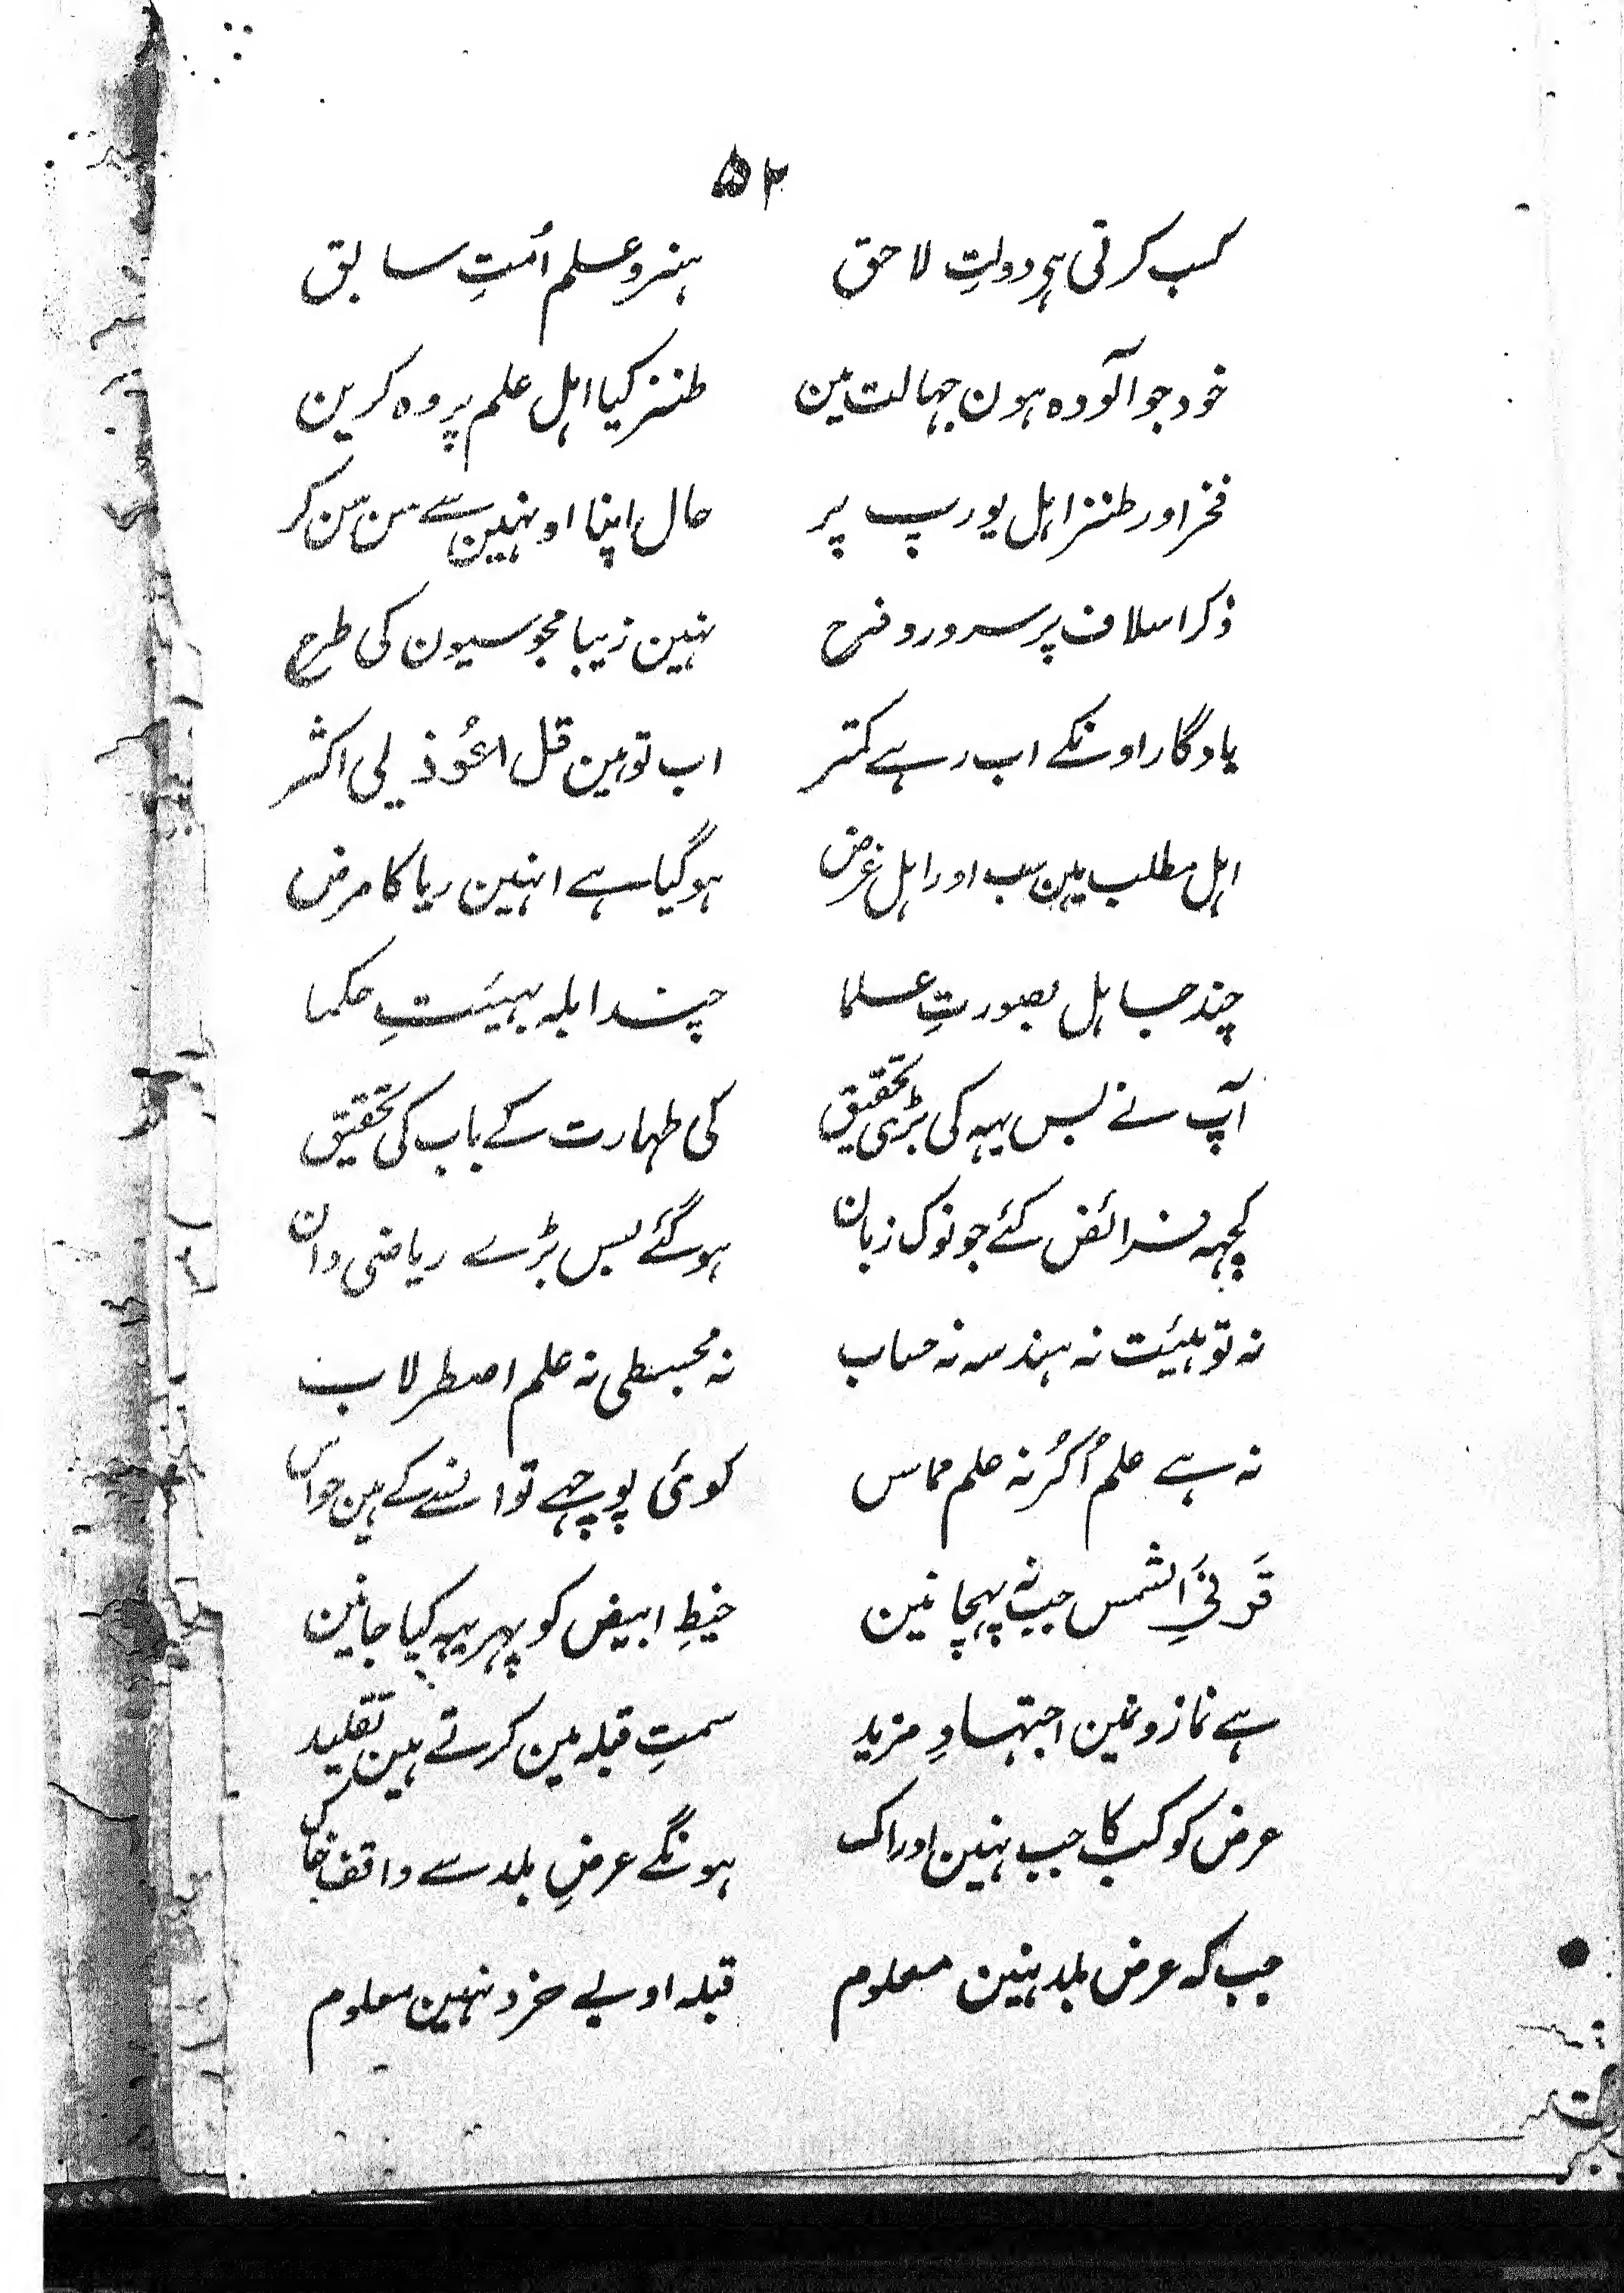 ۵۲
کسب کرتی ہی دولتِ لاحق ہنر و علم اُمتِ سابق
خود جو آلودہ ہون جہالت مین طنز کیا اہل علم پر وہ کرین
فخر اور طنز اہل یورپ پر حال اپنا اونہین سے سن سن کر
ذکر اسلاف پر سرور و فرح نہین زیبا مجوسیون کی طرح
یادگار اونکے اب رہے کمتر اب تو ہین قل اعُوذیے اکثر
اہل مطلب ہین سب اور اہل غرض ہو گیا ہے انہین ریا کا مرض
چند جاہل بصورتِ علما چند ابلہ بہیئتِ حکما
آپ نے بس یہہ کی بڑی تحقیق کی طہارت کے باب کی تحقیق
کچہہ فرائض کئے جو نوک زبان ہو گئے بس بڑے ریاضی دان
نہ تو ہیئت نہ ہندسہ نہ حساب نہ مجسطی نہ علم اصطرلاب
نہ ہے علم اُکَرُ نہ علم مماس کوئی پوچہے تو انسے کے ہین حواس
قَرنیِ الشمس جب نہ پہچانین خیطِ ابیض کو پہر یہہ کیا جانین
ہے نمازونمین اجتہادِ مزید سمتِ قبلہ مین کرتے ہین تقلید
عرض کوکب کا جب نہین ادراک ہونگے عرضِ بلد سے واقف خاک
جب کہ عرض بلد نہین معلوم قبلہ او بے خرد نہین معلوم